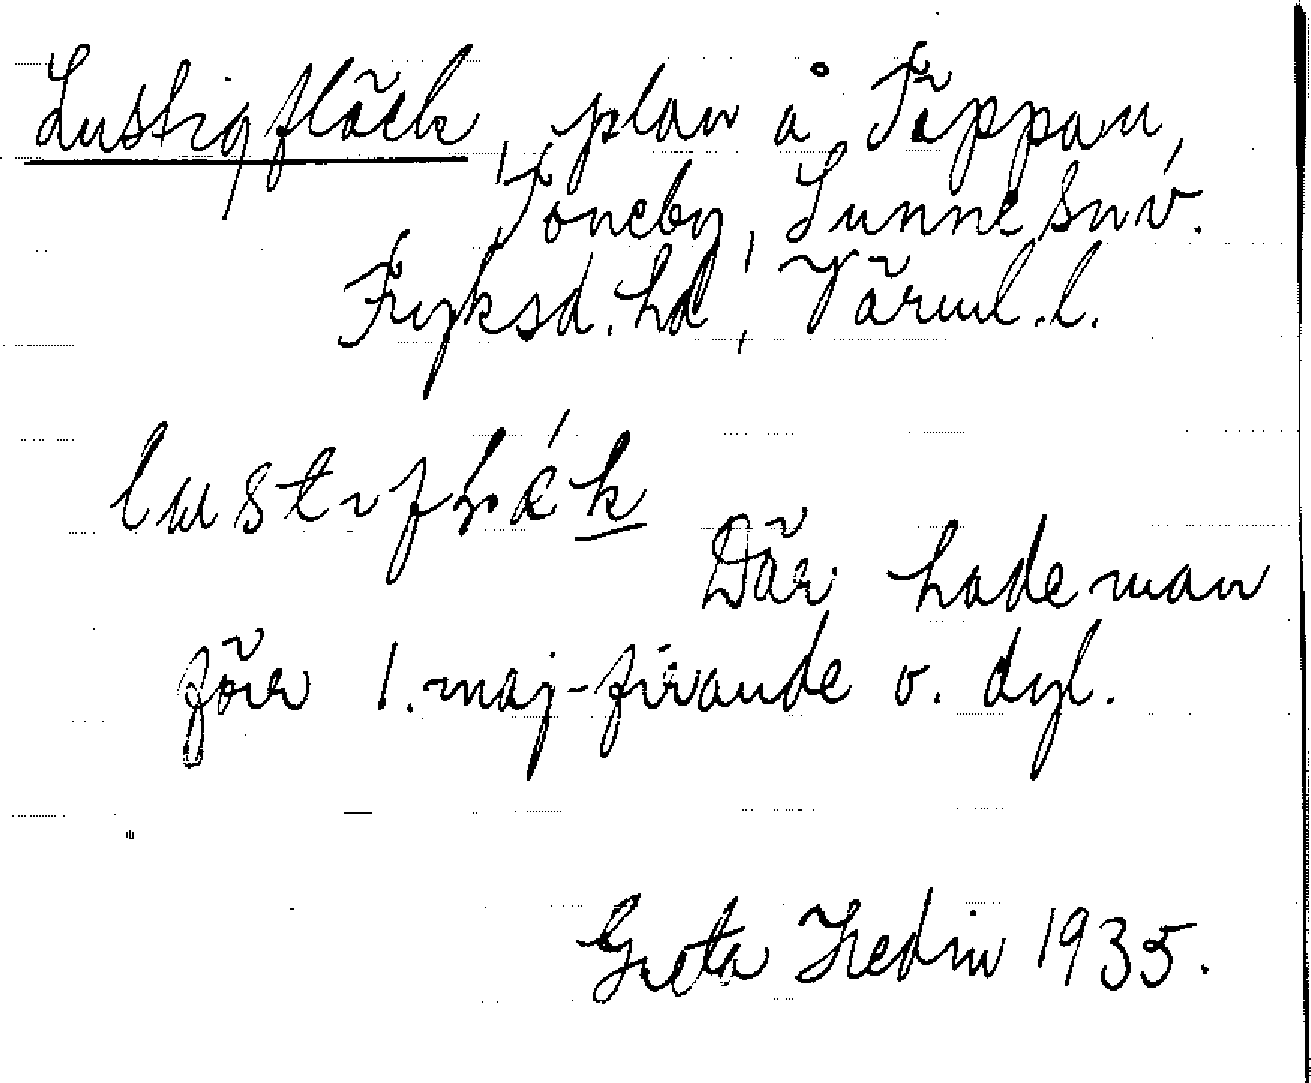 Lustigfläck, plan å Täppan,
Töneby, Sunne snv.
Fryksd. hd, Värml. l.
lustıfḷék
Där hade man
förr 1. maj-firande o. dyl.
Greta Hedin 1935.